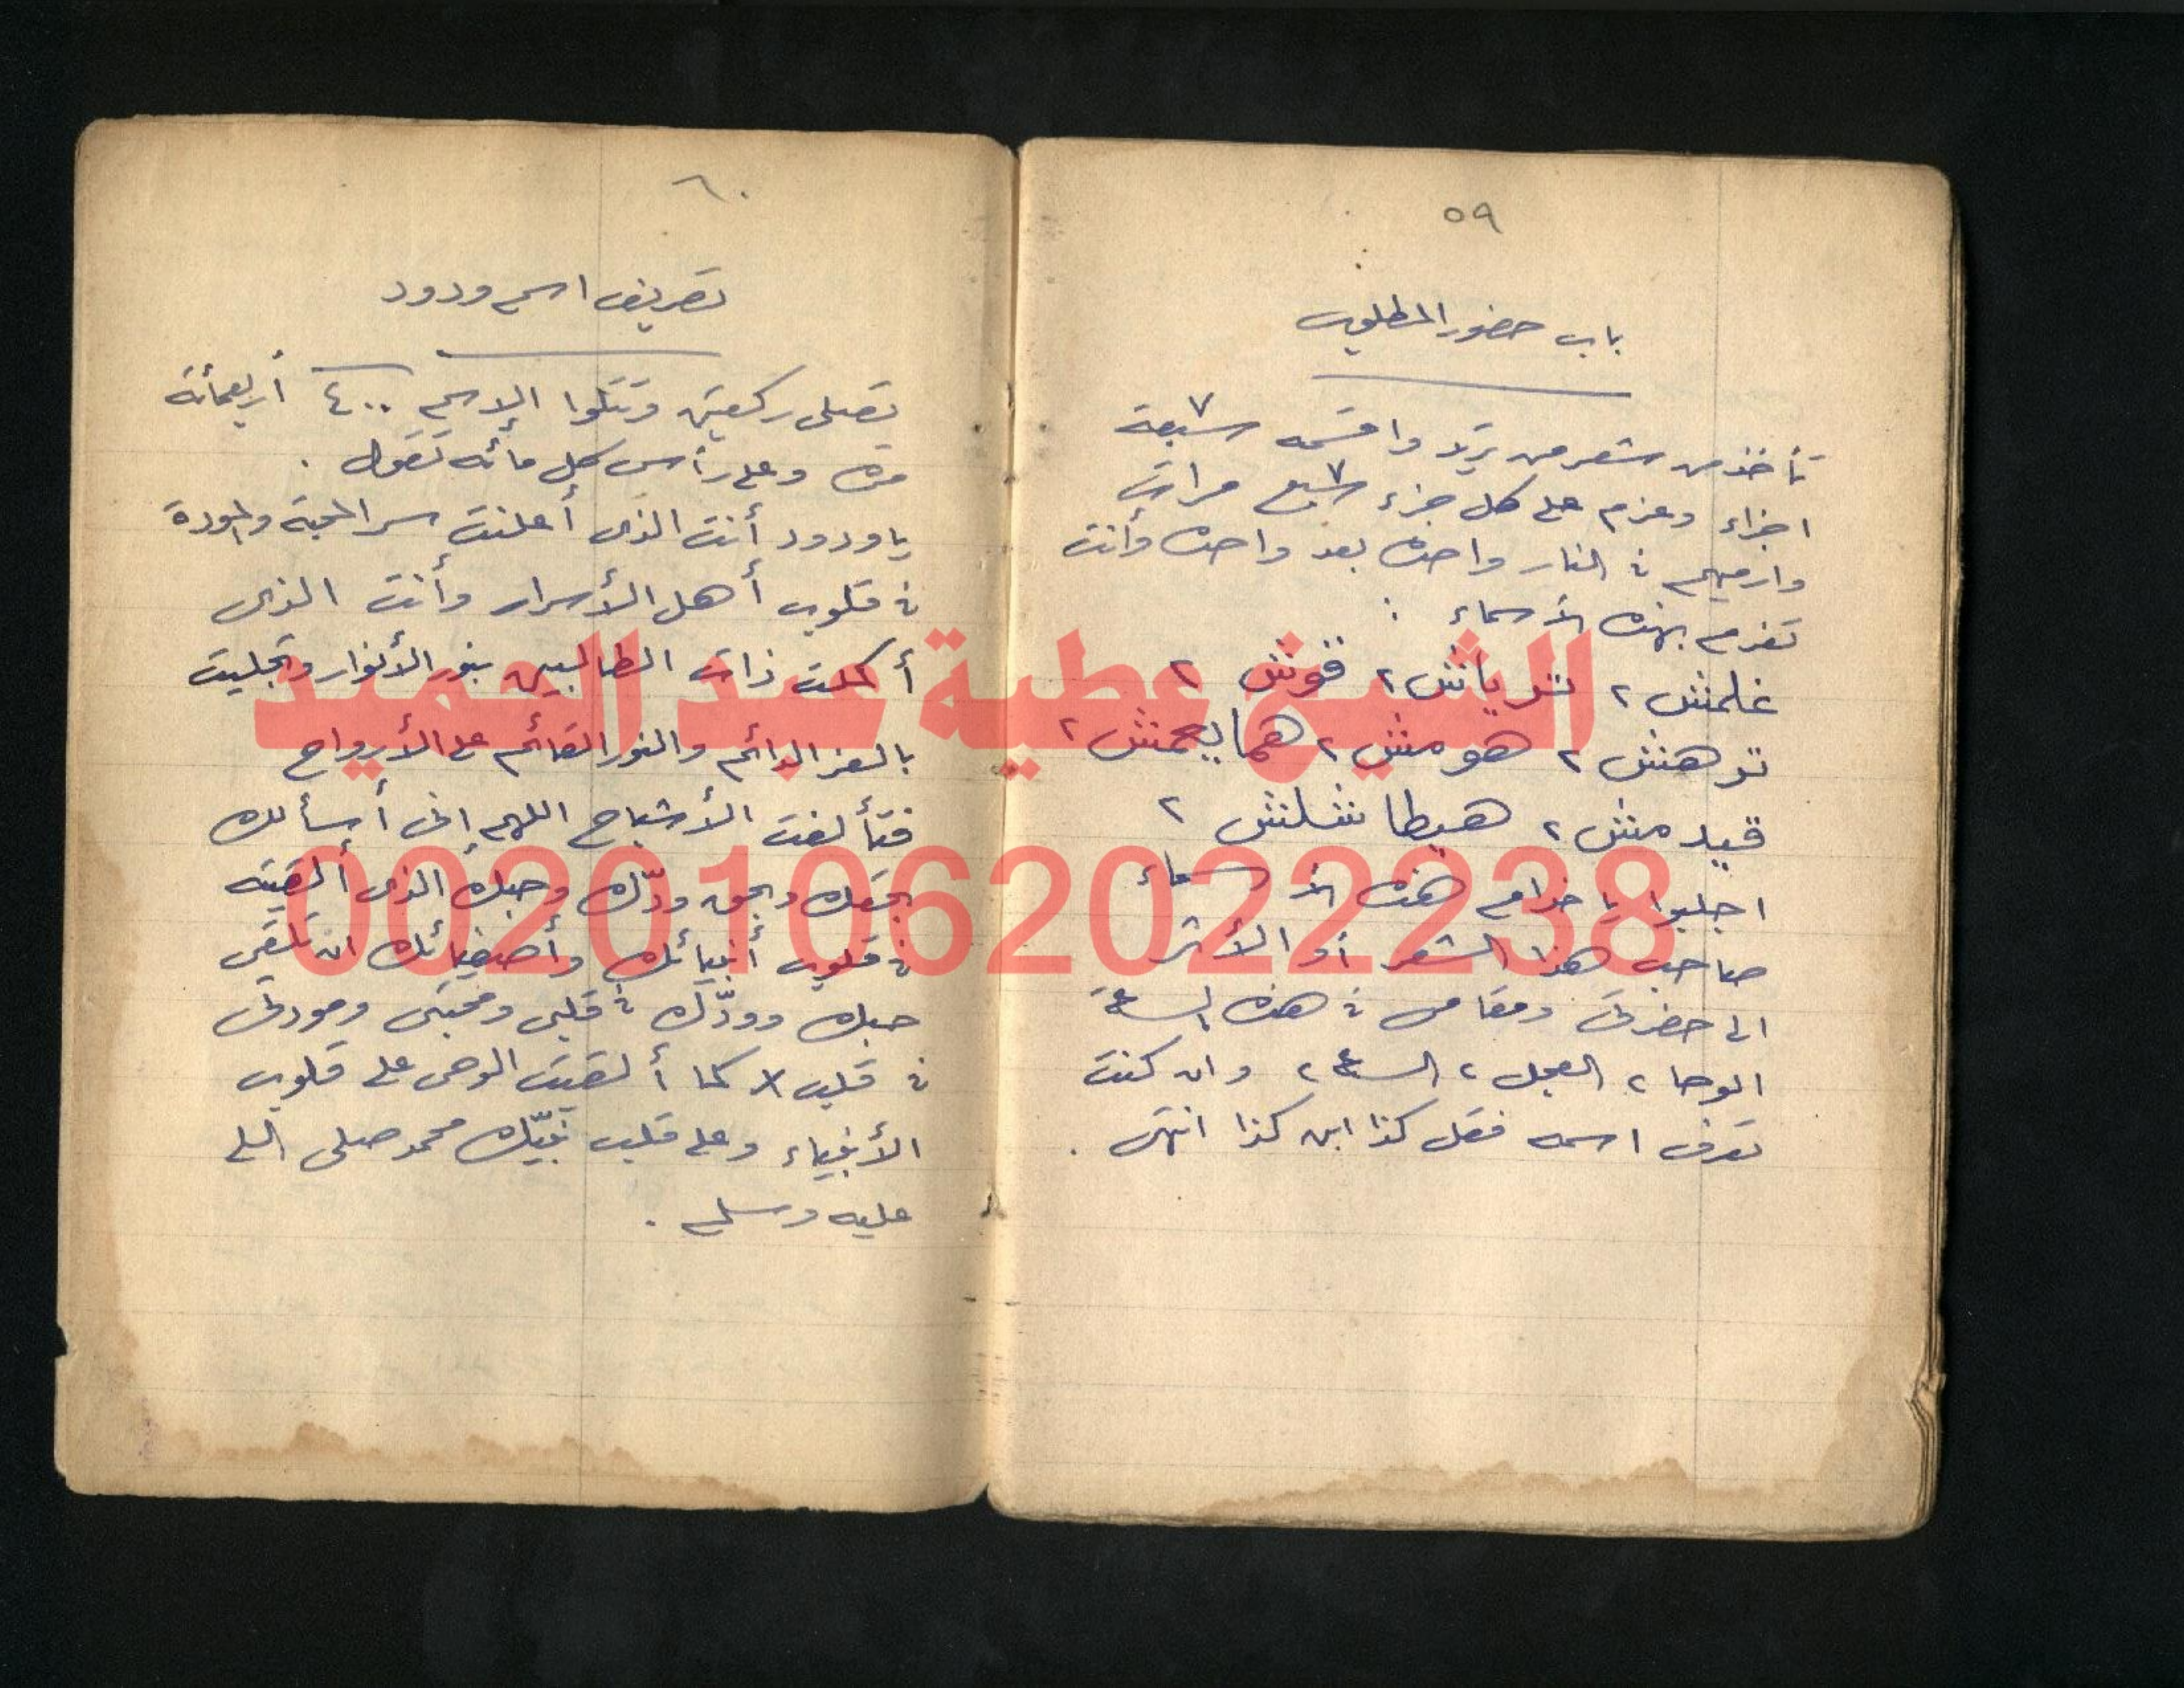 ٥٩
باب حضور المطلوب
تأخذ من شعر من تريد واقسمه ٧ سبعة
اجزاء وعزم على كل جزء ٧ سبع مرات
وارميهم في النار واحده بعد واحده وأنت
تعزم بهذه الأسماء :
غلمش ٢ ٢ قوش ٢
٢ هومش ٢ ٢
قيدمش ٢ هيطا شلش ٢
اجلبوا يا خدام هذه الأسماء
صاحب هذا الشعر أو الأثر
الى حضرتى ومقامى في هذه الساعة
الوحا ٢ العجل ٢ الساعة ٢ وان كنت
تعرف اسمه فقل كذا ابن كذا انتهى .
٦٠
تصريف اسم ودود
تصلى ركعتين وتتلوا الإسم ٤٠٠ أربعمائة
مره وعلى رأس كل مائه تقول .
يا ودود أنت الذى أعلنت سر المحبة والمودة
في قلوب أهل الأسرار وأنت الذى
أكملت ذات الطالبين بنور الأنوار وتجليت
بالعز الدائم والنور القائم على الأرواح
فتألفت الأشباح اللهم إنى أسألك
بحقك وبحق ودّك وحبك الذى ألقيته
في قلوب أنبيائك وأصفيائك ان تلقى
حبك وودّك في قلبى ومحبتى ومودتى
في قلب كما ألقيت الوحى على قلوب
الأنبياء وعلى قلب نبيّك محمد صلى الله
عليه وسلم .
الشيخ عطية عبد الحميد
00201062022238